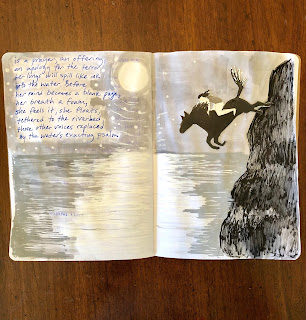 is a prayer, an offering,
an apology for the terror
her lungs will spill like ink
into the water. Before
her mind becomes a blank page,
her breath a
she feels it, she floats,
tethered to the riverbed
those other voices replaced
by the water's exacting psalm.